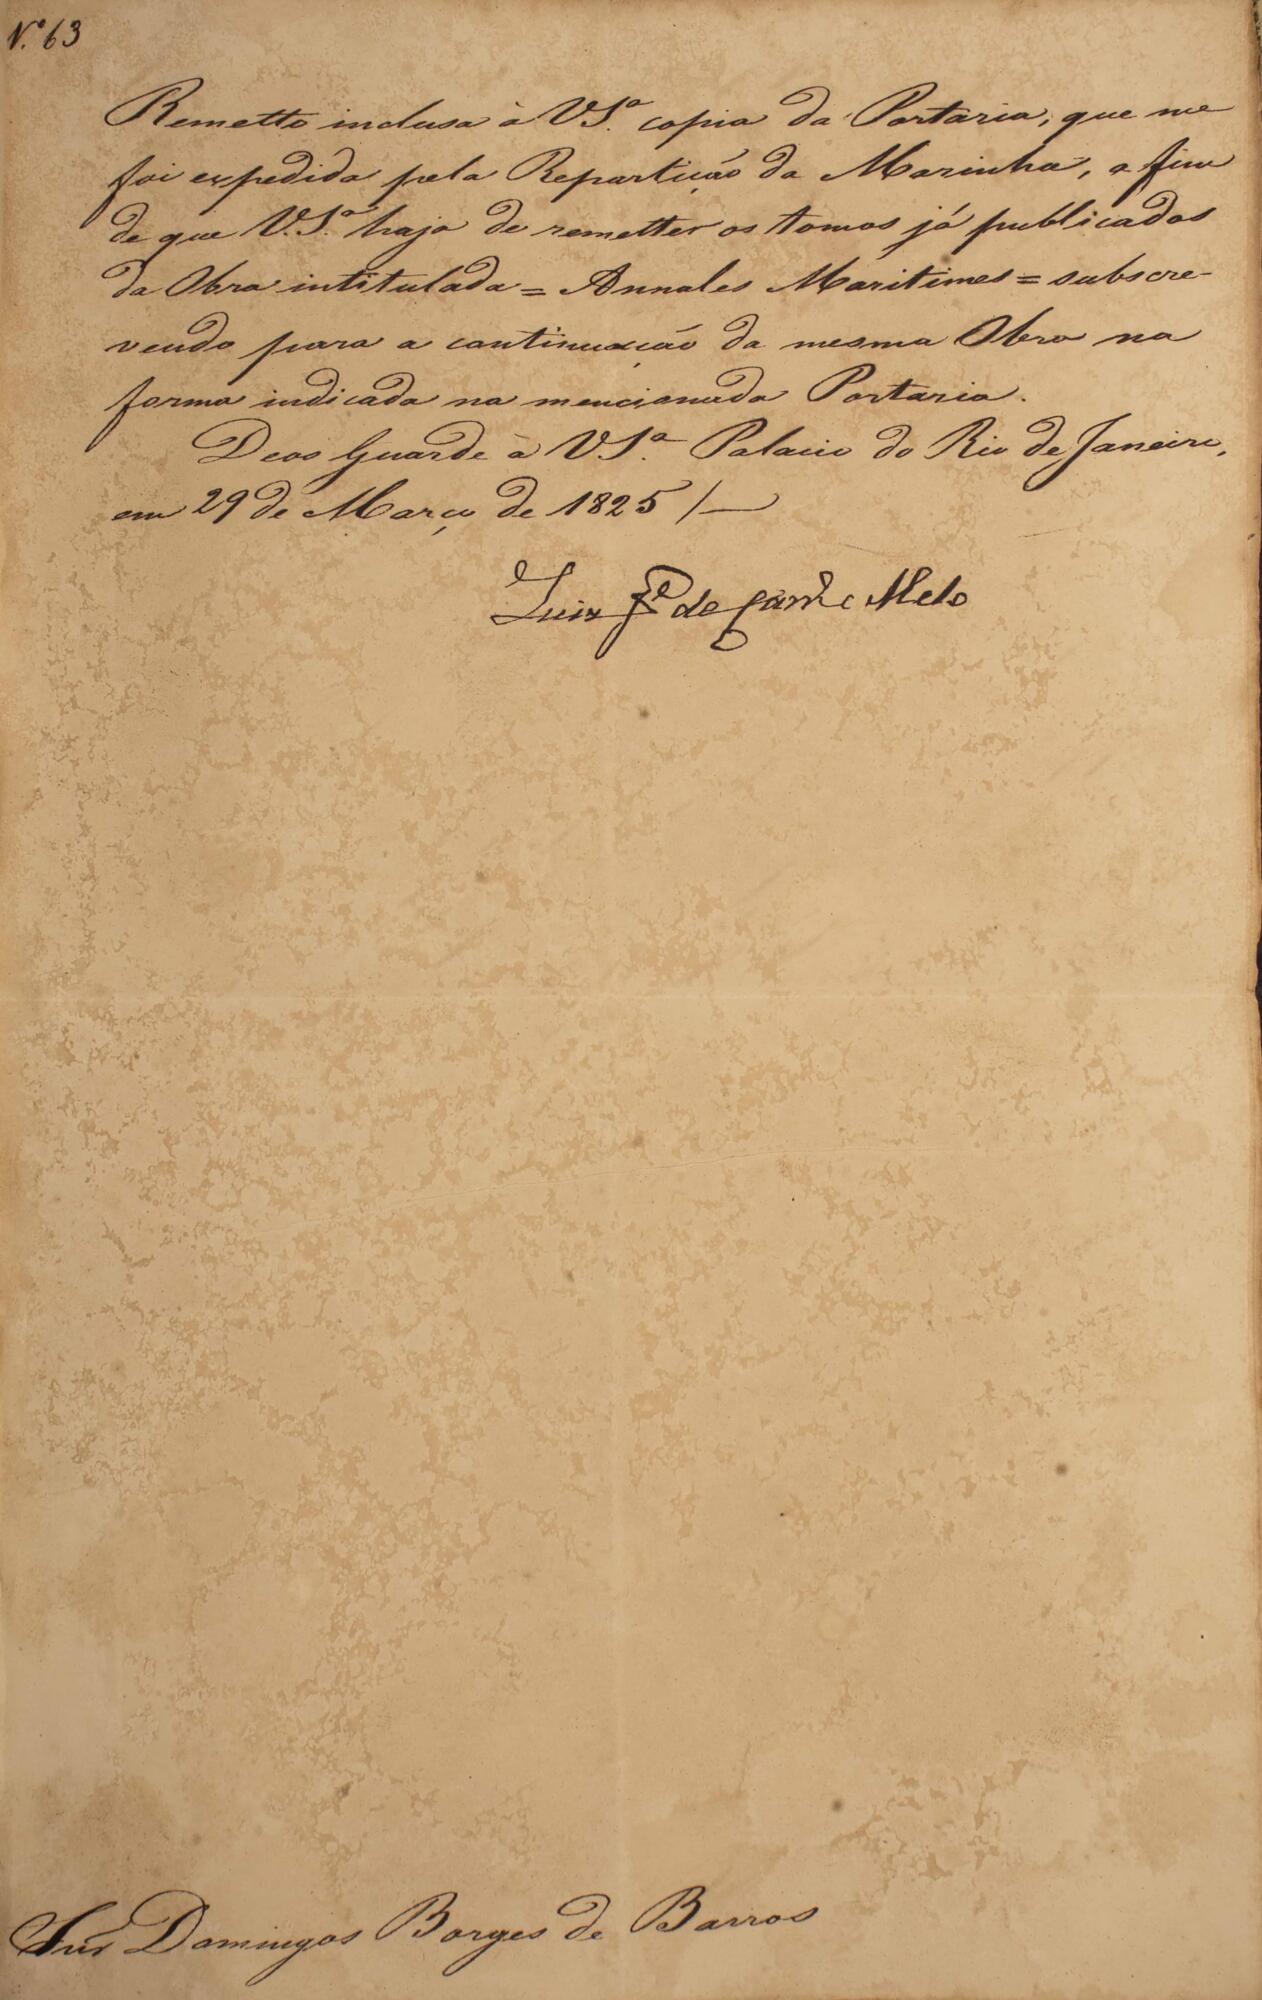 N.º 63
Remetto inclusa à V S.ª copia da Portaria, que me
foi expedida pela Repartição da Marinha, a fim
de que V. S.ª haja de remetter os tomos já publicados
da Obra intitulada = Annales Maritimes = subscre-
vendo para a continuação da mesma Obra na
forma indicada na mencionada Portaria.
Deos Guarde à V S.ª Palacio do Rio de Janeiro,
em 29 de Março de 1825 /—
Luiz Je de Carvº e Mello
Snr Domingos Borges de Barros